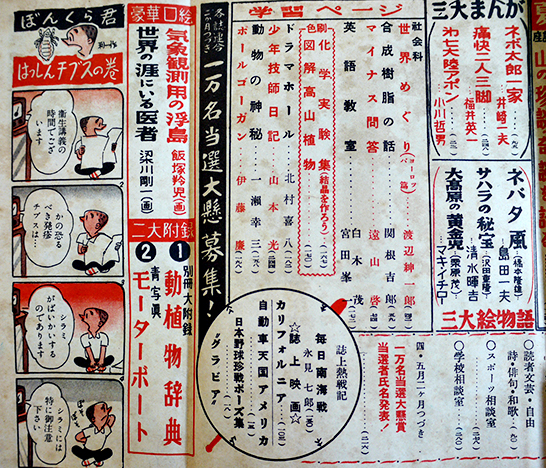 三大まんが
ネボ太郎一家
井崎一夫
痛快二人三脚
福井英一
わ七大陸アポン
小川哲男
ネバタ風
島田一夫
サハラの秘宝
清水暉吉
大高原の黄金児
マキイチロー
三大絵物語
◎読者文芸・自由
詩・俳句・和歌
◎スポーツ相談室
◎学校相談室
学習ページ
社会科
世界めぐり
渡辺紳一郎
合成樹脂の話
関根吉郎
マイナス問答
遠山啓
英語教室
白木茂
宮田峯一
刷色
化学実験集
(結晶を作ろう)
図解高山植物
ドラマホール
北村喜八
少年技師日記
山本光
動物の神秘
一瀬幸三
ポールゴーガン
伊藤廉
四・五月二ヶ月つづき
一万名当選大懸賞
当選者氏名発表!
誌上熱戦記
毎日南海戦
永見七郎
☆誌上映画☆
カリフォルニア
自動車天国アメリカ
日本野球珍戦ポーズ集
グラビア
一万名当選大懸賞募集!
豪華口絵
気象観測用の浮島
飯塚羚児(画)
世界の涯にいる医者
梁川剛一(画)
二大附録
1
別冊大附録
動植物辞典
2
青写真
モーターボート
ぼんくら君
はっしんチブスの巻
1
衛生講義の
時間でござ
います
2
かの恐る
べき発疹
チブスは…
3
シラミ
がばいかいする
のであります
4
シラミには
特に御注意
下さい